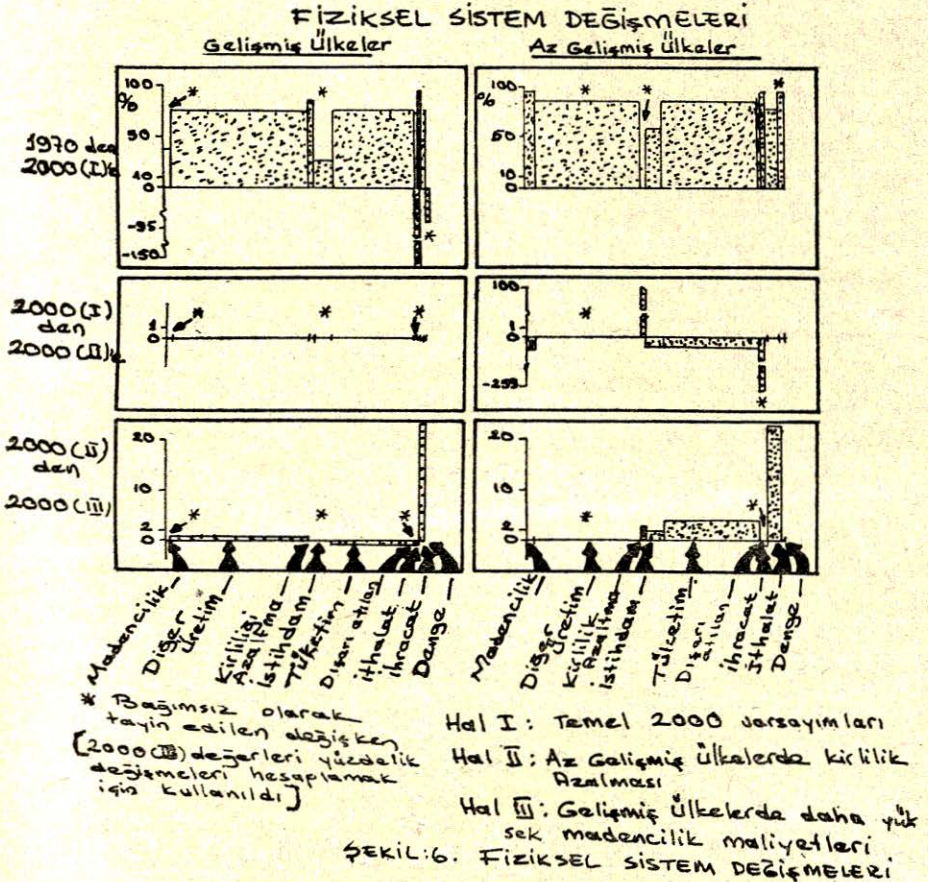 FİZİKSEL SİSTEM DEĞİŞMELERİ
Gelişmiş Ülkeler
Az Gelişmiş Ülkeler
1970 den
2000 (I)'e
100
%
50
40
0
-95
-150
*
*
*
100
%
50
10
0
*
*
*
2000 (I)
den
2000 (II)'e
1
0
*
*
*
100
1
0
-255
*
*
2000 (II)
den
2000 (III)
20
10
2
0
*
*
*
20
10
2
0
*
*
Madencilik
Diğer
Üretim
Kirliliği
Azaltma
İstihdam
Tüketim
Dışarı atılan
İthalat
İhracat
Denge
Madencilik
Diğer
Üretim
Kirlilik
Azaltma
İstihdam
Tüketim
Dışarı
atılan
İhracat
İthalat
Denge
* Bağımsız olarak
tayin edilen değişken
[2000 (III) değerleri yüzdelik
değişmeleri hesaplamak
için kullanıldı]
Hal I: Temel 2000 varsayımları
Hal II: Az Gelişmiş Ülkelerde kirlilik
Azalması
Hal III: Gelişmiş Ülkelerde daha yük
sek madencilik maliyetleri
ŞEKİL:6. FİZİKSEL SİSTEM DEĞİŞMELERİ